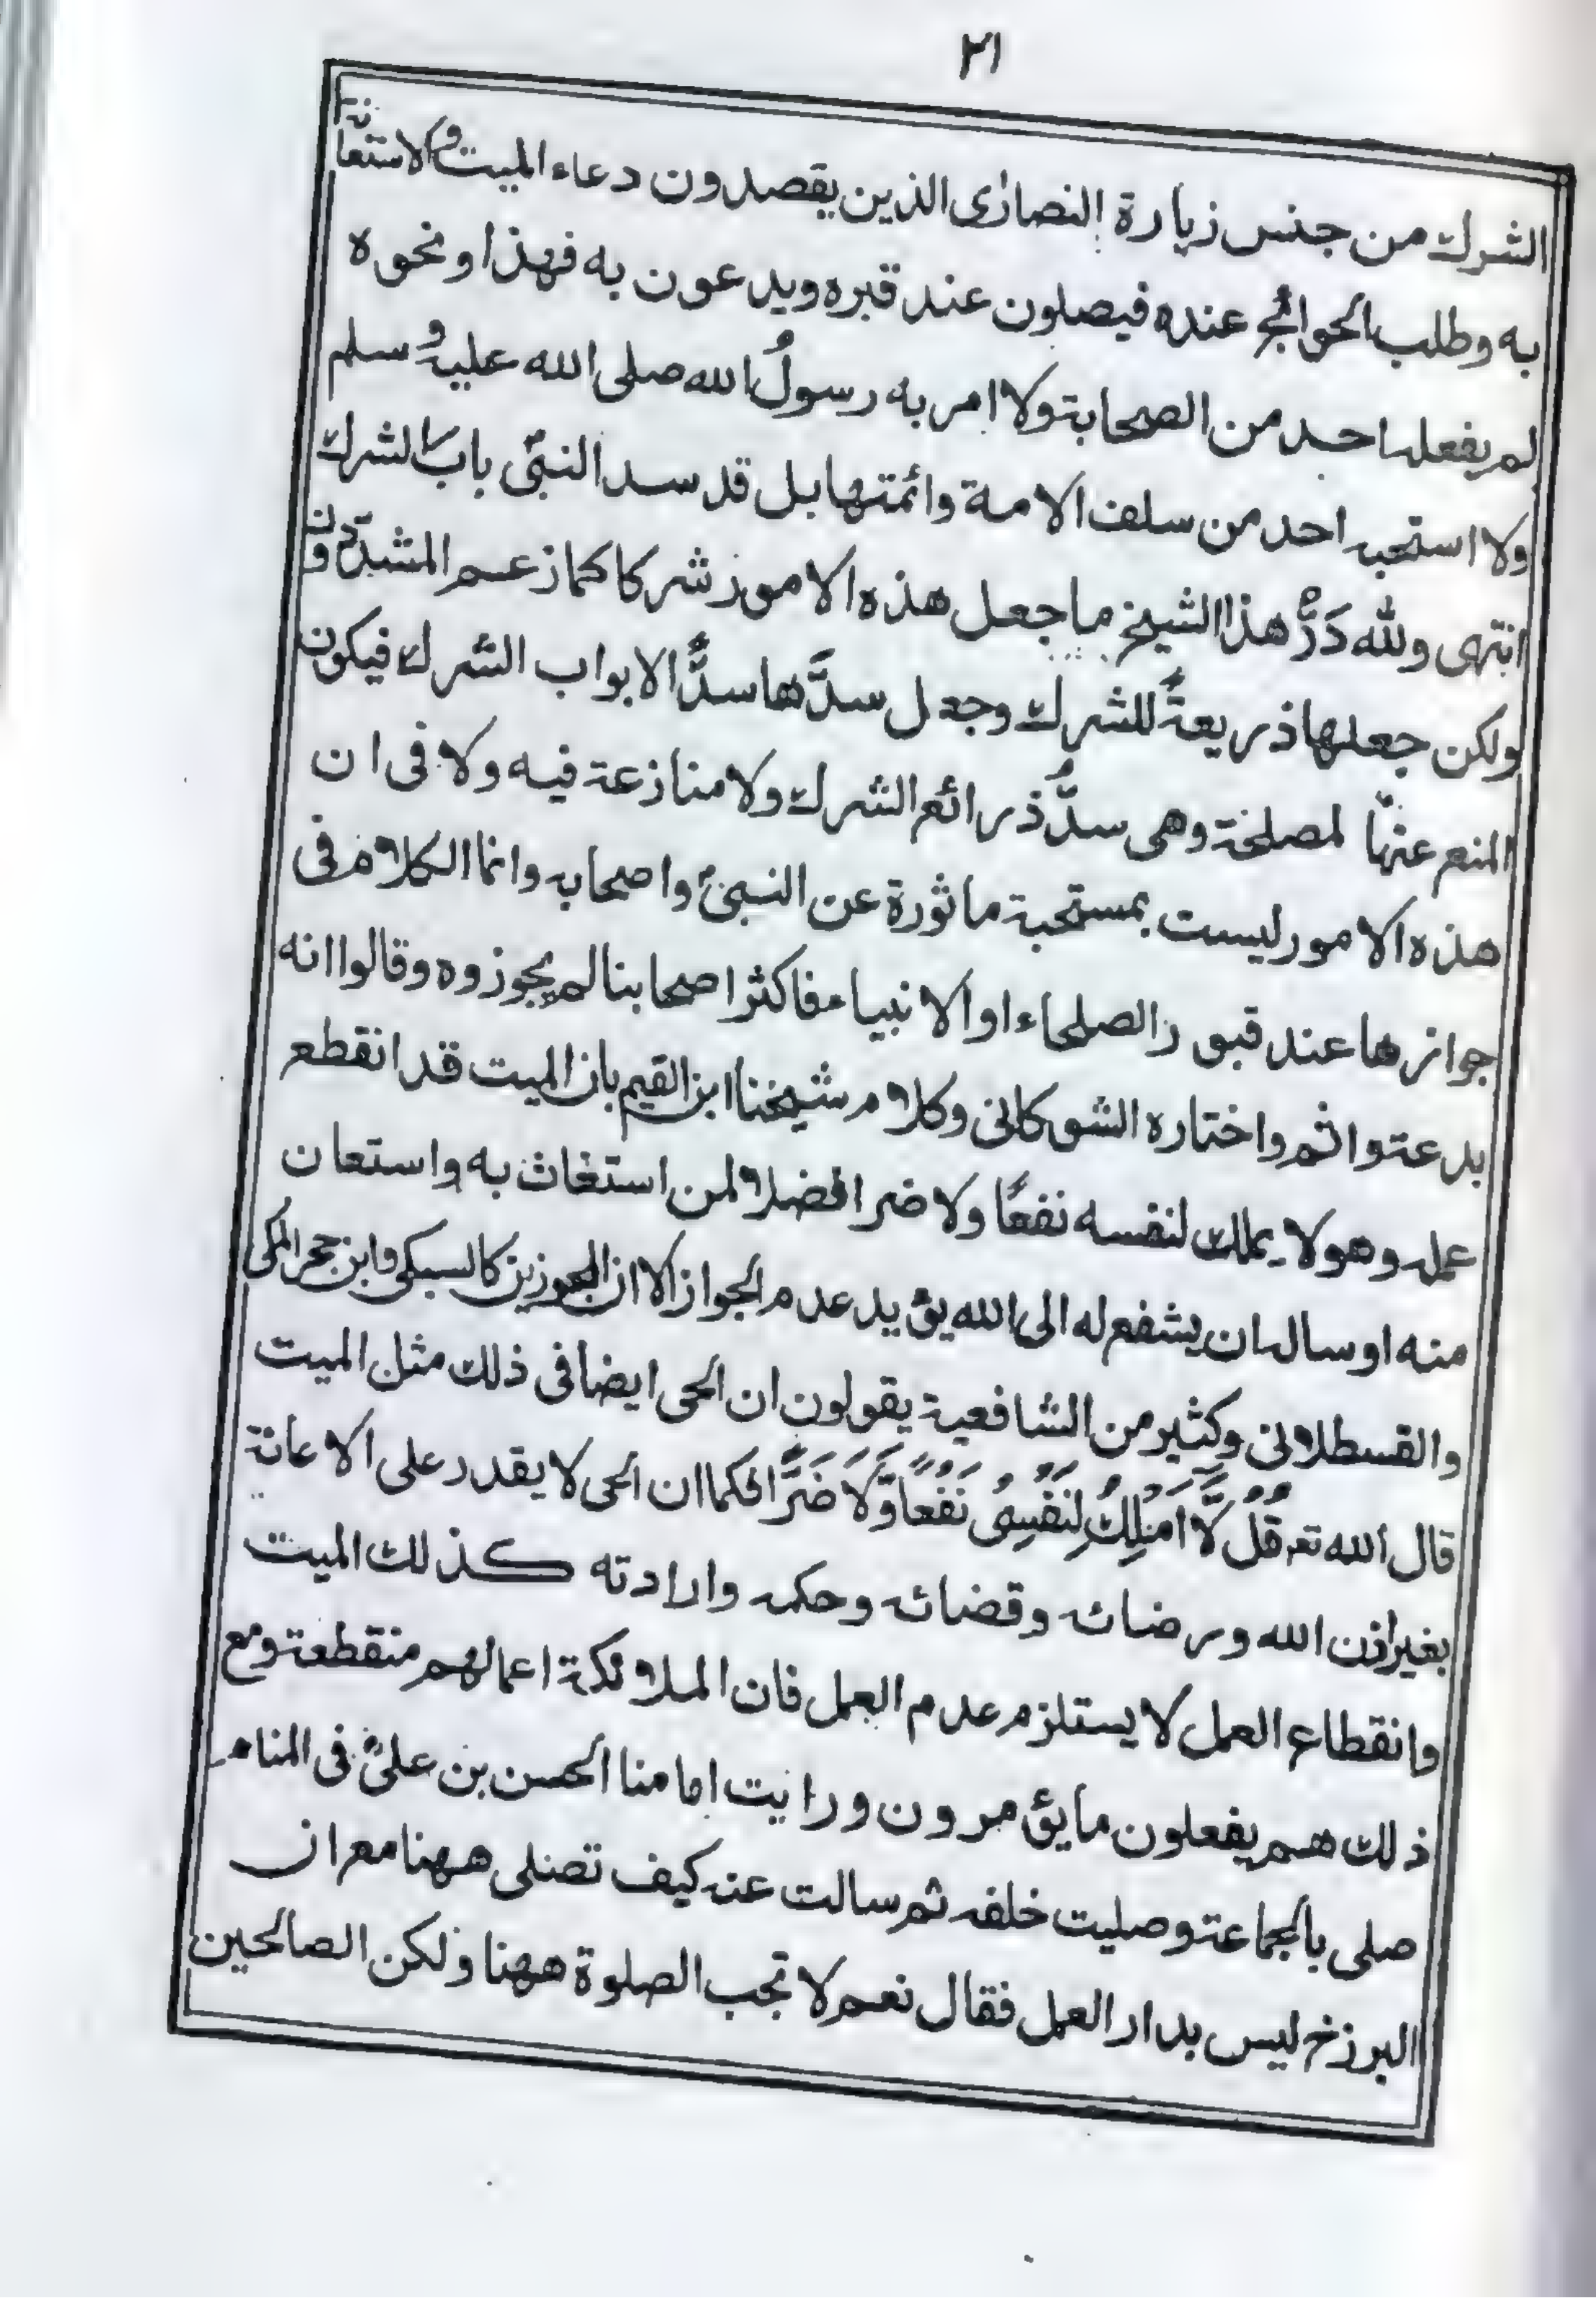 ٢١
الشرك من جنس زيارة النصارى الذين يقصدون دعاء الميت والاستعانة
به وطلب الحوائج عنده فيصلون عند قبره ويدعون به فهذا ونحوه
لم يفعله احد من الصحابة ولا امر به رسولُ الله صلى الله عليه وسلم
ولا استحبه احد من سلف الامة وائمتها بل قد سد النبيؐ باب الشرك
انتهى ولله دَرُّ هذا الشيخ ما جعل هذه الامور شركا كما زعم المشدّدون
ولكن جعلها ذريعةً للشرك وجعل سدَّها سدًّا لابواب الشرك فيكون
المنع عنها لمصلحة وهى سدُّ ذرائع الشرك ولا منازعة فيه ولا فى ان
هذه الامور ليست بمستحبة ماثورة عن النبىؐ واصحابه وانما الكلام فى
جوازها عند قبور الصلحاء او الانبياء فاكثر اصحابنا لم يجوزوه وقالوا انه
بدعة واثم واختاره الشوكانى وكلام شيخنا ابن القيم بان الميت قد انقطع
عمله وهو لا يملك لنفسه نفعًا ولا ضرا فضلا لمن استغاث به واستعان
منه او ساله ان يشفع له الى الله يؤيد عدم الجواز الا ان المجوزين كالسبكى وابن حجر المكى
والقسطلانى وكثير من الشافعية يقولون ان الحى ايضا فى ذلك مثل الميت
قال الله تعـ قُلْ لَّا اَمْلِكُ لِنَفْسِىْ نَفْعًا وَّلَا ضَرًّا فكما ان الحى لا يقدر على الاعانة
بغير اذن الله ورضائه وقضائه وحكمه وارادته كذلك الميت
وانقطاع العمل لا يستلزم عدم العمل فان الملائكة اعمالهم منقطعة ومع
ذلك هم يفعلون ما يؤمرون ورايت امامنا الحسن بن علىؓ فى المنام
صلى بالجماعة وصليت خلفه ثم سالت عنه كيف تصلى ههنا مع ان
البرزخ ليس بدار العمل فقال نعم لا تجب الصلوة ههنا ولكن الصالحين